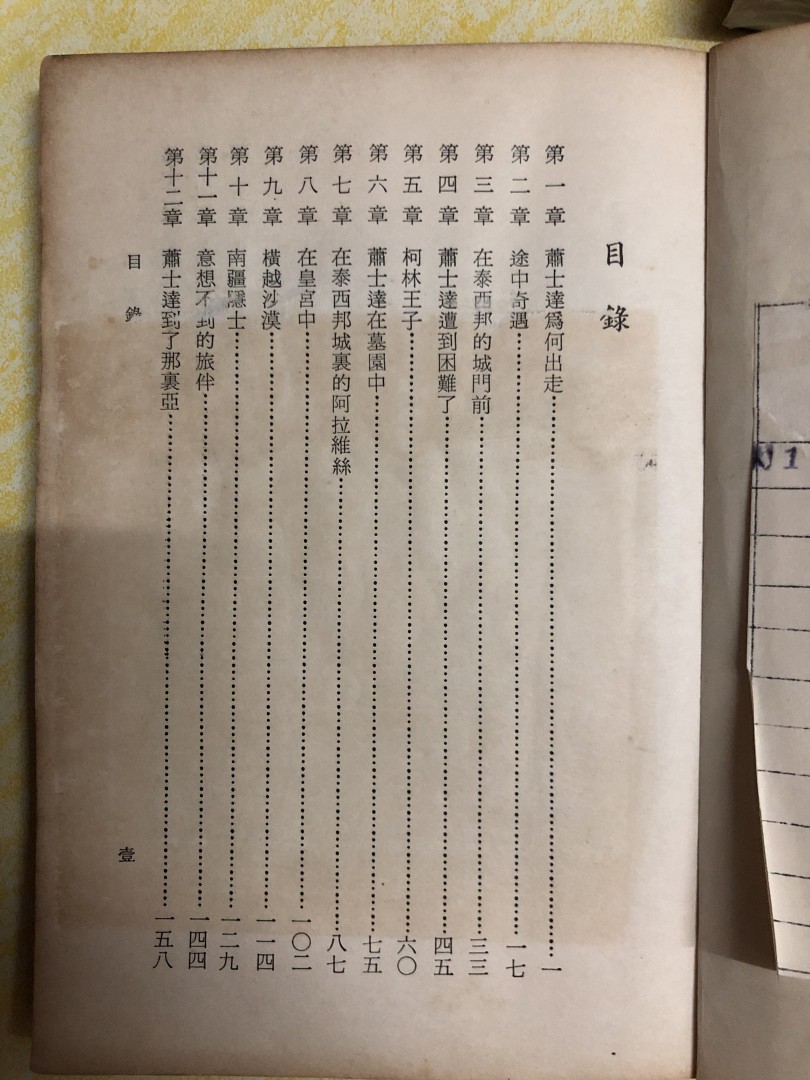 目錄
第一章 蕭士達爲何出走⋯⋯⋯⋯一
第二章 途中奇遇⋯⋯⋯⋯一七
第三章 在泰西邦的城門前⋯⋯⋯⋯三三
第四章 蕭士達遭到困難了⋯⋯⋯⋯四五
第五章 柯林王子⋯⋯⋯⋯六〇
第六章 蕭士達在墓園中⋯⋯⋯⋯七五
第七章 在泰西邦城裏的阿拉維絲⋯⋯⋯⋯八七
第八章 在皇宮中⋯⋯⋯⋯一〇二
第九章 橫越沙漠⋯⋯⋯⋯一一四
第十章 南疆隱士⋯⋯⋯⋯一二九
第十一章 意想不到的旅伴⋯⋯⋯⋯一四四
第十二章 蕭士達到了那裏亞⋯⋯⋯⋯一五八
目錄 壹
1